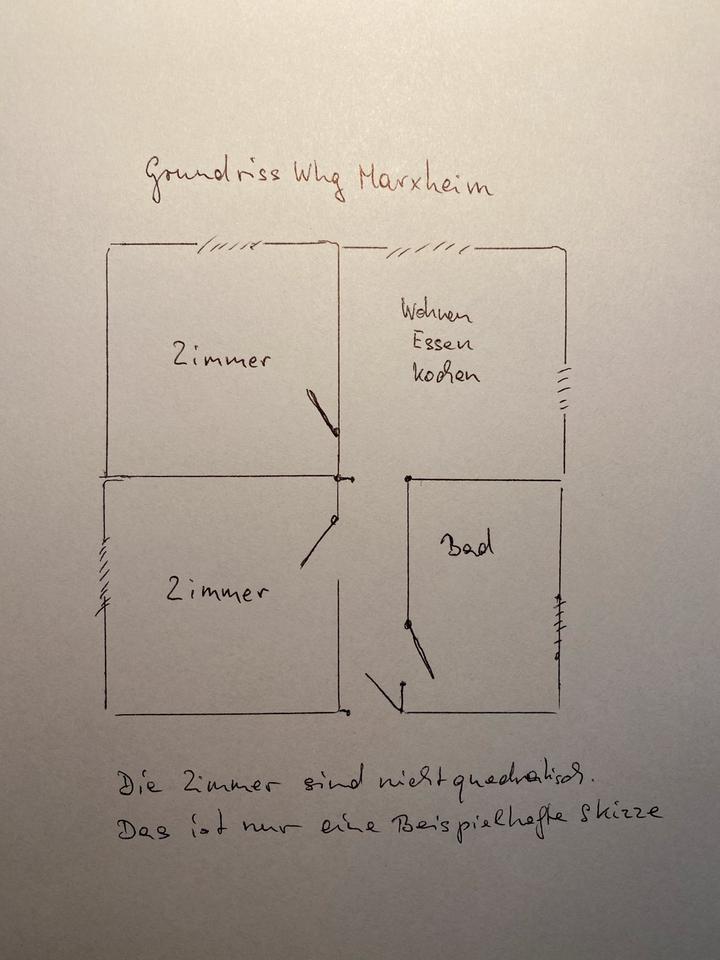 Grundriss Whg Marxheim
Zimmer
Wohnen
Essen
kochen
Zimmer
Bad
Die Zimmer sind nicht quadratisch.
Das ist nur eine Beispielhafte Skizze